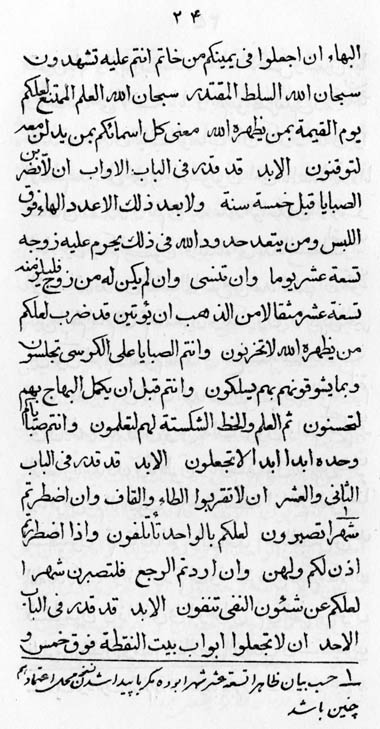 ٢٤
البهاء ان اجعلوا فی یمینکم من خاتم انتم علیه تشهدون
سبحان الله السلط المقتدر سبحان الله العلم الممتنع لعلکم
یوم القیمة بمن یظهره الله معنی کل اسمائکم بمن یدلن بعد
لتوقنون الابد قد قدر فی الباب الاواب ان لا تضربن
الصبایا قبل خمسة سنة ولا بعد ذلک الا عدد الهاء فوق
اللبس ومن یتعد حدود الله فی ذلک یحرم علیه زوجه
تسعة عشر یوما وان تنسی وان لم یکن له من زوج فلیلزمنه
تسعة عشر مثقالا من الذهب ان یؤتین قد ضرب لعلکم
من یظهره الله لا تحزنون وانتم الصبایا علی الکرسی تجلسون
وبما یشوقونهم بهم یسلکون وانتم قبل ان یکمل البهاج بهیم
لتحسنون ثم العلم والخط الشکستة لهم لتعلمون وانتم صبایاکم
وحده ابدا ابدا لا تجعلون الابد قد قدر فی الباب
الثانی والعشر ان لا تقربوا الطاء والقاف وان اضطررتم
شهرا تصبرون لعلکم بالواحد تأتلفون واذا اضطررتم
اذن لکم ولهن وان اردتم الرجع فلتصبرن شهرا ١
لعلکم عن شئون النفی تنفون الابد قد قدر فی الباب
الاحد ان لا تجعلوا ابواب بیت النقطة فوق خمس و
١ حسب بیان ظاهرا تسعة عشر شهرا بوده مکر با پیدا شدن نسخ محل اعتماد هم
چنین باشد